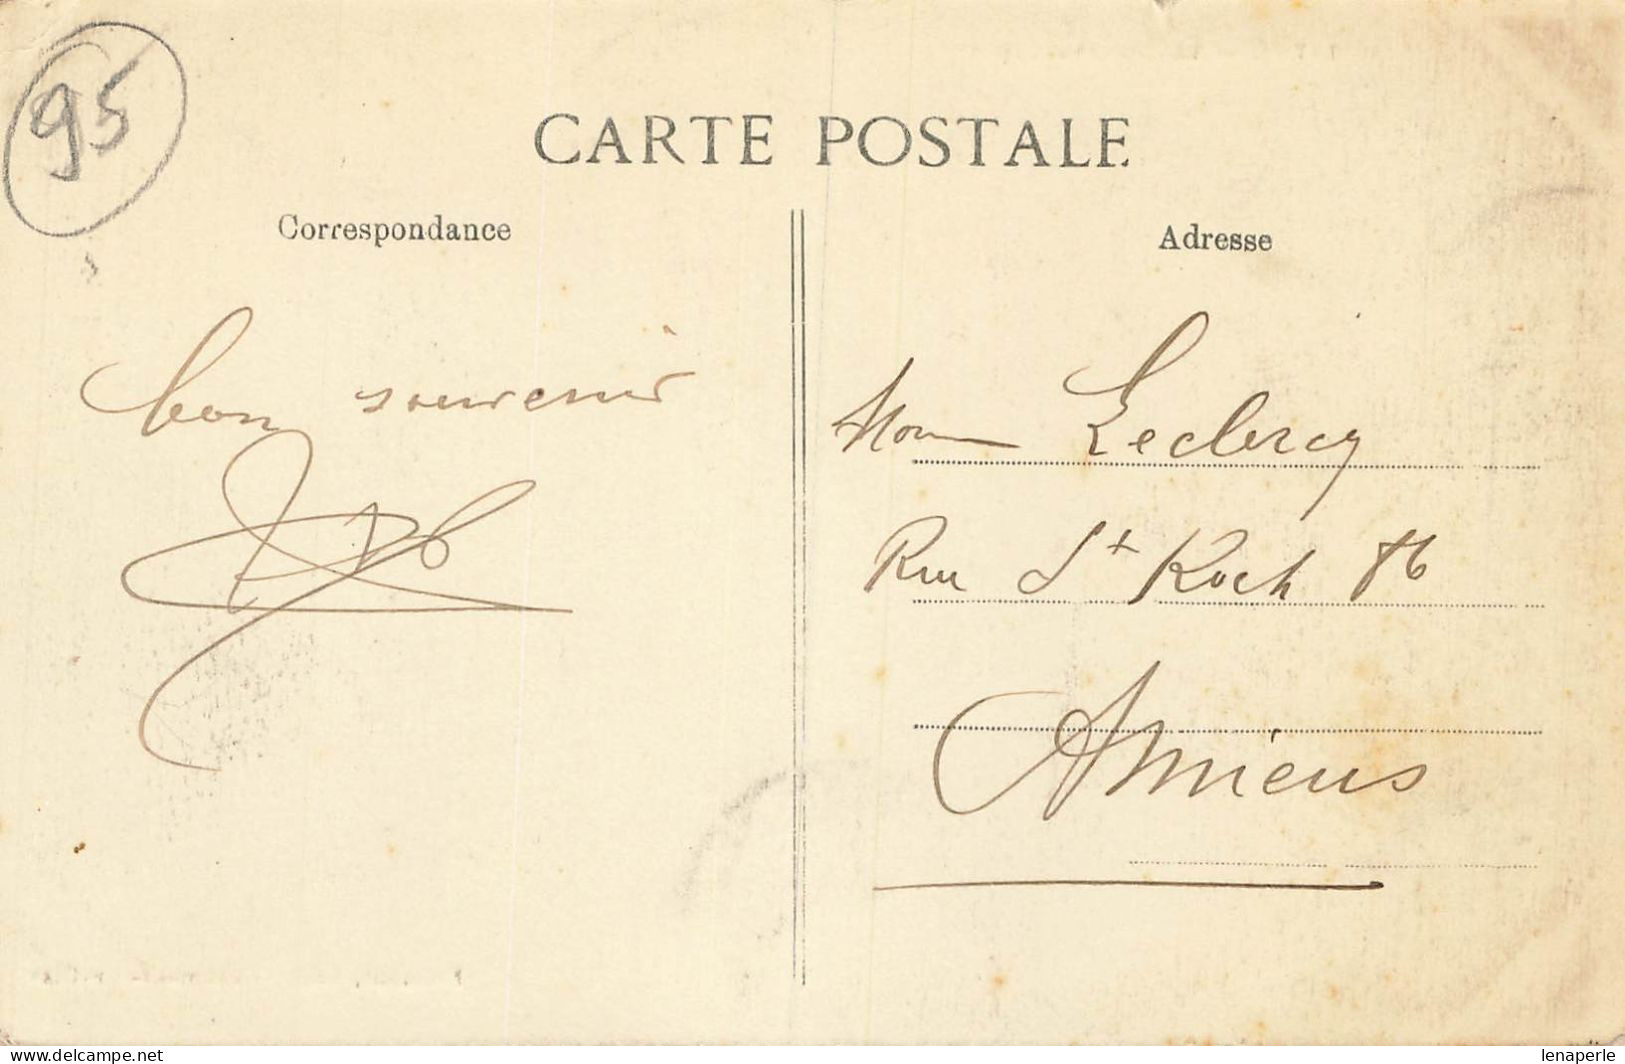 95
CARTE POSTALE
Correspondance
Adresse
bon souvenir
Leclercq
Rue St Roch 86
Amiens
www.delcampe.net
lenaperle